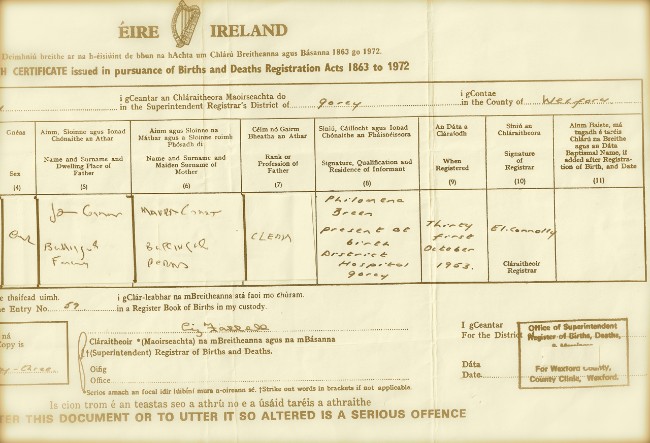 ÉIRE IRELAND
Deimhniú breithe ar na h-éisiúint de bhun na hAchta um Chlárú Breitheanna agus Básanna 1863 go 1972.
H CERTIFICATE issued in pursuance of Births and Deaths Registration Acts 1863 to 1972
i gCeantar an Chláraitheora Maoirseachta do
in the Superintendent Registrar's District of Gorey
i gContae
in the County of Wexford
Gnéas
Sex
(4)
Ainm, Sloinne agus Ionad
Chónaithe an Athar
Name and Surname and
Dwelling Place of
Father
(5)
Ainm agus Sloinne na
Máthar agus a Sloinne roimh
Phósadh di
Name and Surname and
Maiden Surname of
Mother
(6)
Céim nó Gairm
Bheatha an Athar
Rank or
Profession of
Father
(7)
Síniú, Cáilíocht agus Ionad
Chónaithe an Fháisnéiseora
Signature, Qualification and
Residence of Informant
(8)
An Dáta a
Cláraíodh
When
Registered
(9)
Síniú an
Chláraitheora
Signature
of
Registrar
(10)
Ainm Baiste, má
tugadh é taréis
Chlárú na Breithe
agus an Dáta
Baptismal Name, if
added after Registra-
tion of Birth, and Date
(11)
Philomena
Breen
present at
birth
District
Hospital
Gorey
Thirty
first
October
1953.
E. Connolly
Cláraitheoir
Registrar
thaifead uimh.
Entry No. 59
i gClár-leabhar na mBreitheanna atá faoi mo chúram.
in a Register Book of Births in my custody.
Cláraitheoir *(Maoirseachta) na mBreitheanna agus na mBásanna
†(Superintendent) Registrar of Births and Deaths.
Oifig
Office
*Scrios amach an focal idir lúibíní mura n-oireann sé. †Strike out words in brackets if not applicable.
ná
Copy is
I gCeantar
For the District
Dáta
Date
Office of Superintendent
Register of Births, Deaths,
For Wexford County,
County Clinic, Wexford.
Is cion trom é an teastas seo a athrú no é a úsáid taréis a athraithe
TER THIS DOCUMENT OR TO UTTER IT SO ALTERED IS A SERIOUS OFFENCE